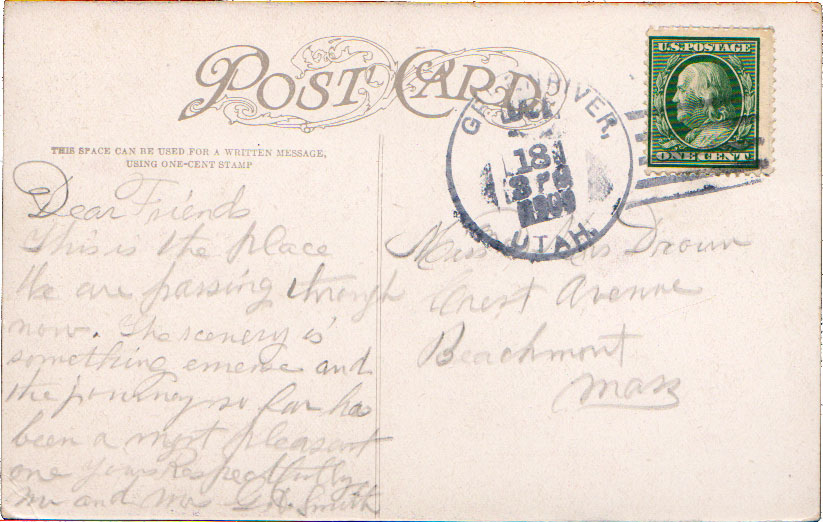 POST CARD
THIS SPACE CAN BE USED FOR A WRITTEN MESSAGE,
USING ONE-CENT STAMP
U.S. POSTAGE
ONE CENT
RIVER,
18
UTAH.
Dear Friends
This is the place
We are passing through
now. The scenery is
something emense and
the journey so far has
been a most pleasant
one Yours Respectfully
Mr and Mrs Smith
Miss Drown
Crest Avenue
Beachmont
Mass